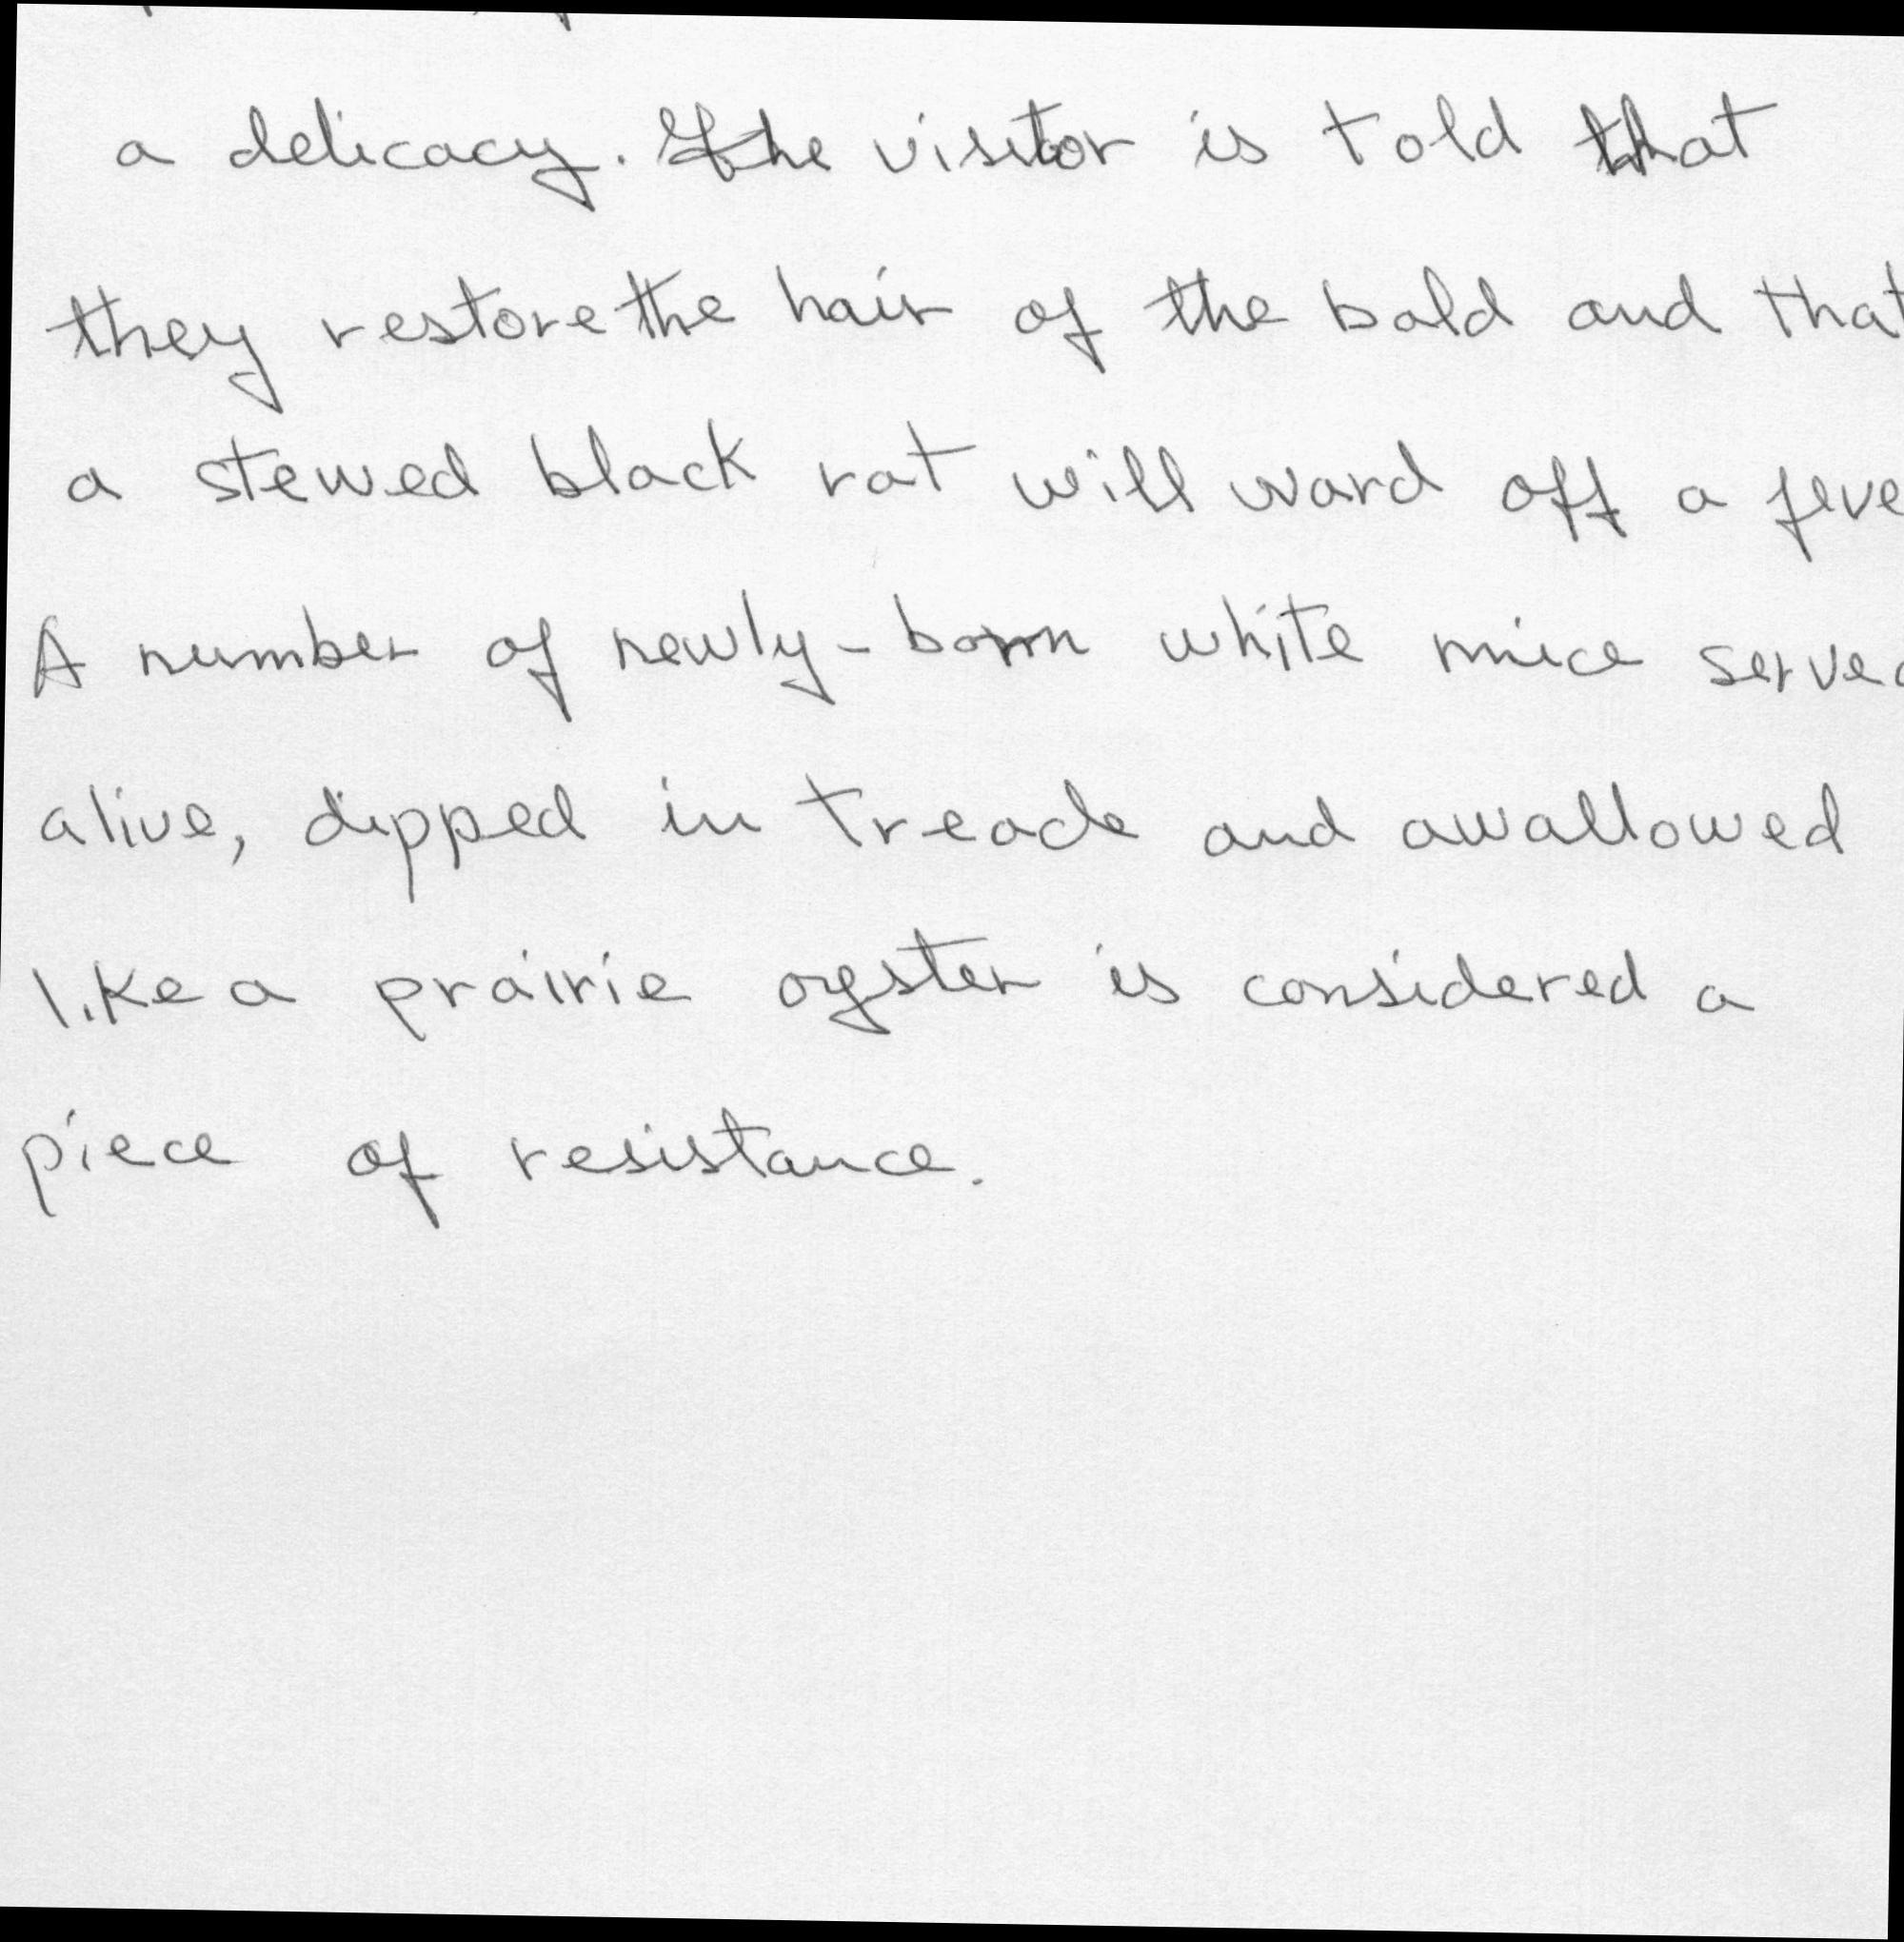 a delicacy. The visitor is told that
they restore the hair of the bald and that
a stewed black rat will ward off a feve
A number of newly-born white mice served
alive, dipped in treacle and awallowed
like a prairie oyster is considered a
piece of resistance.